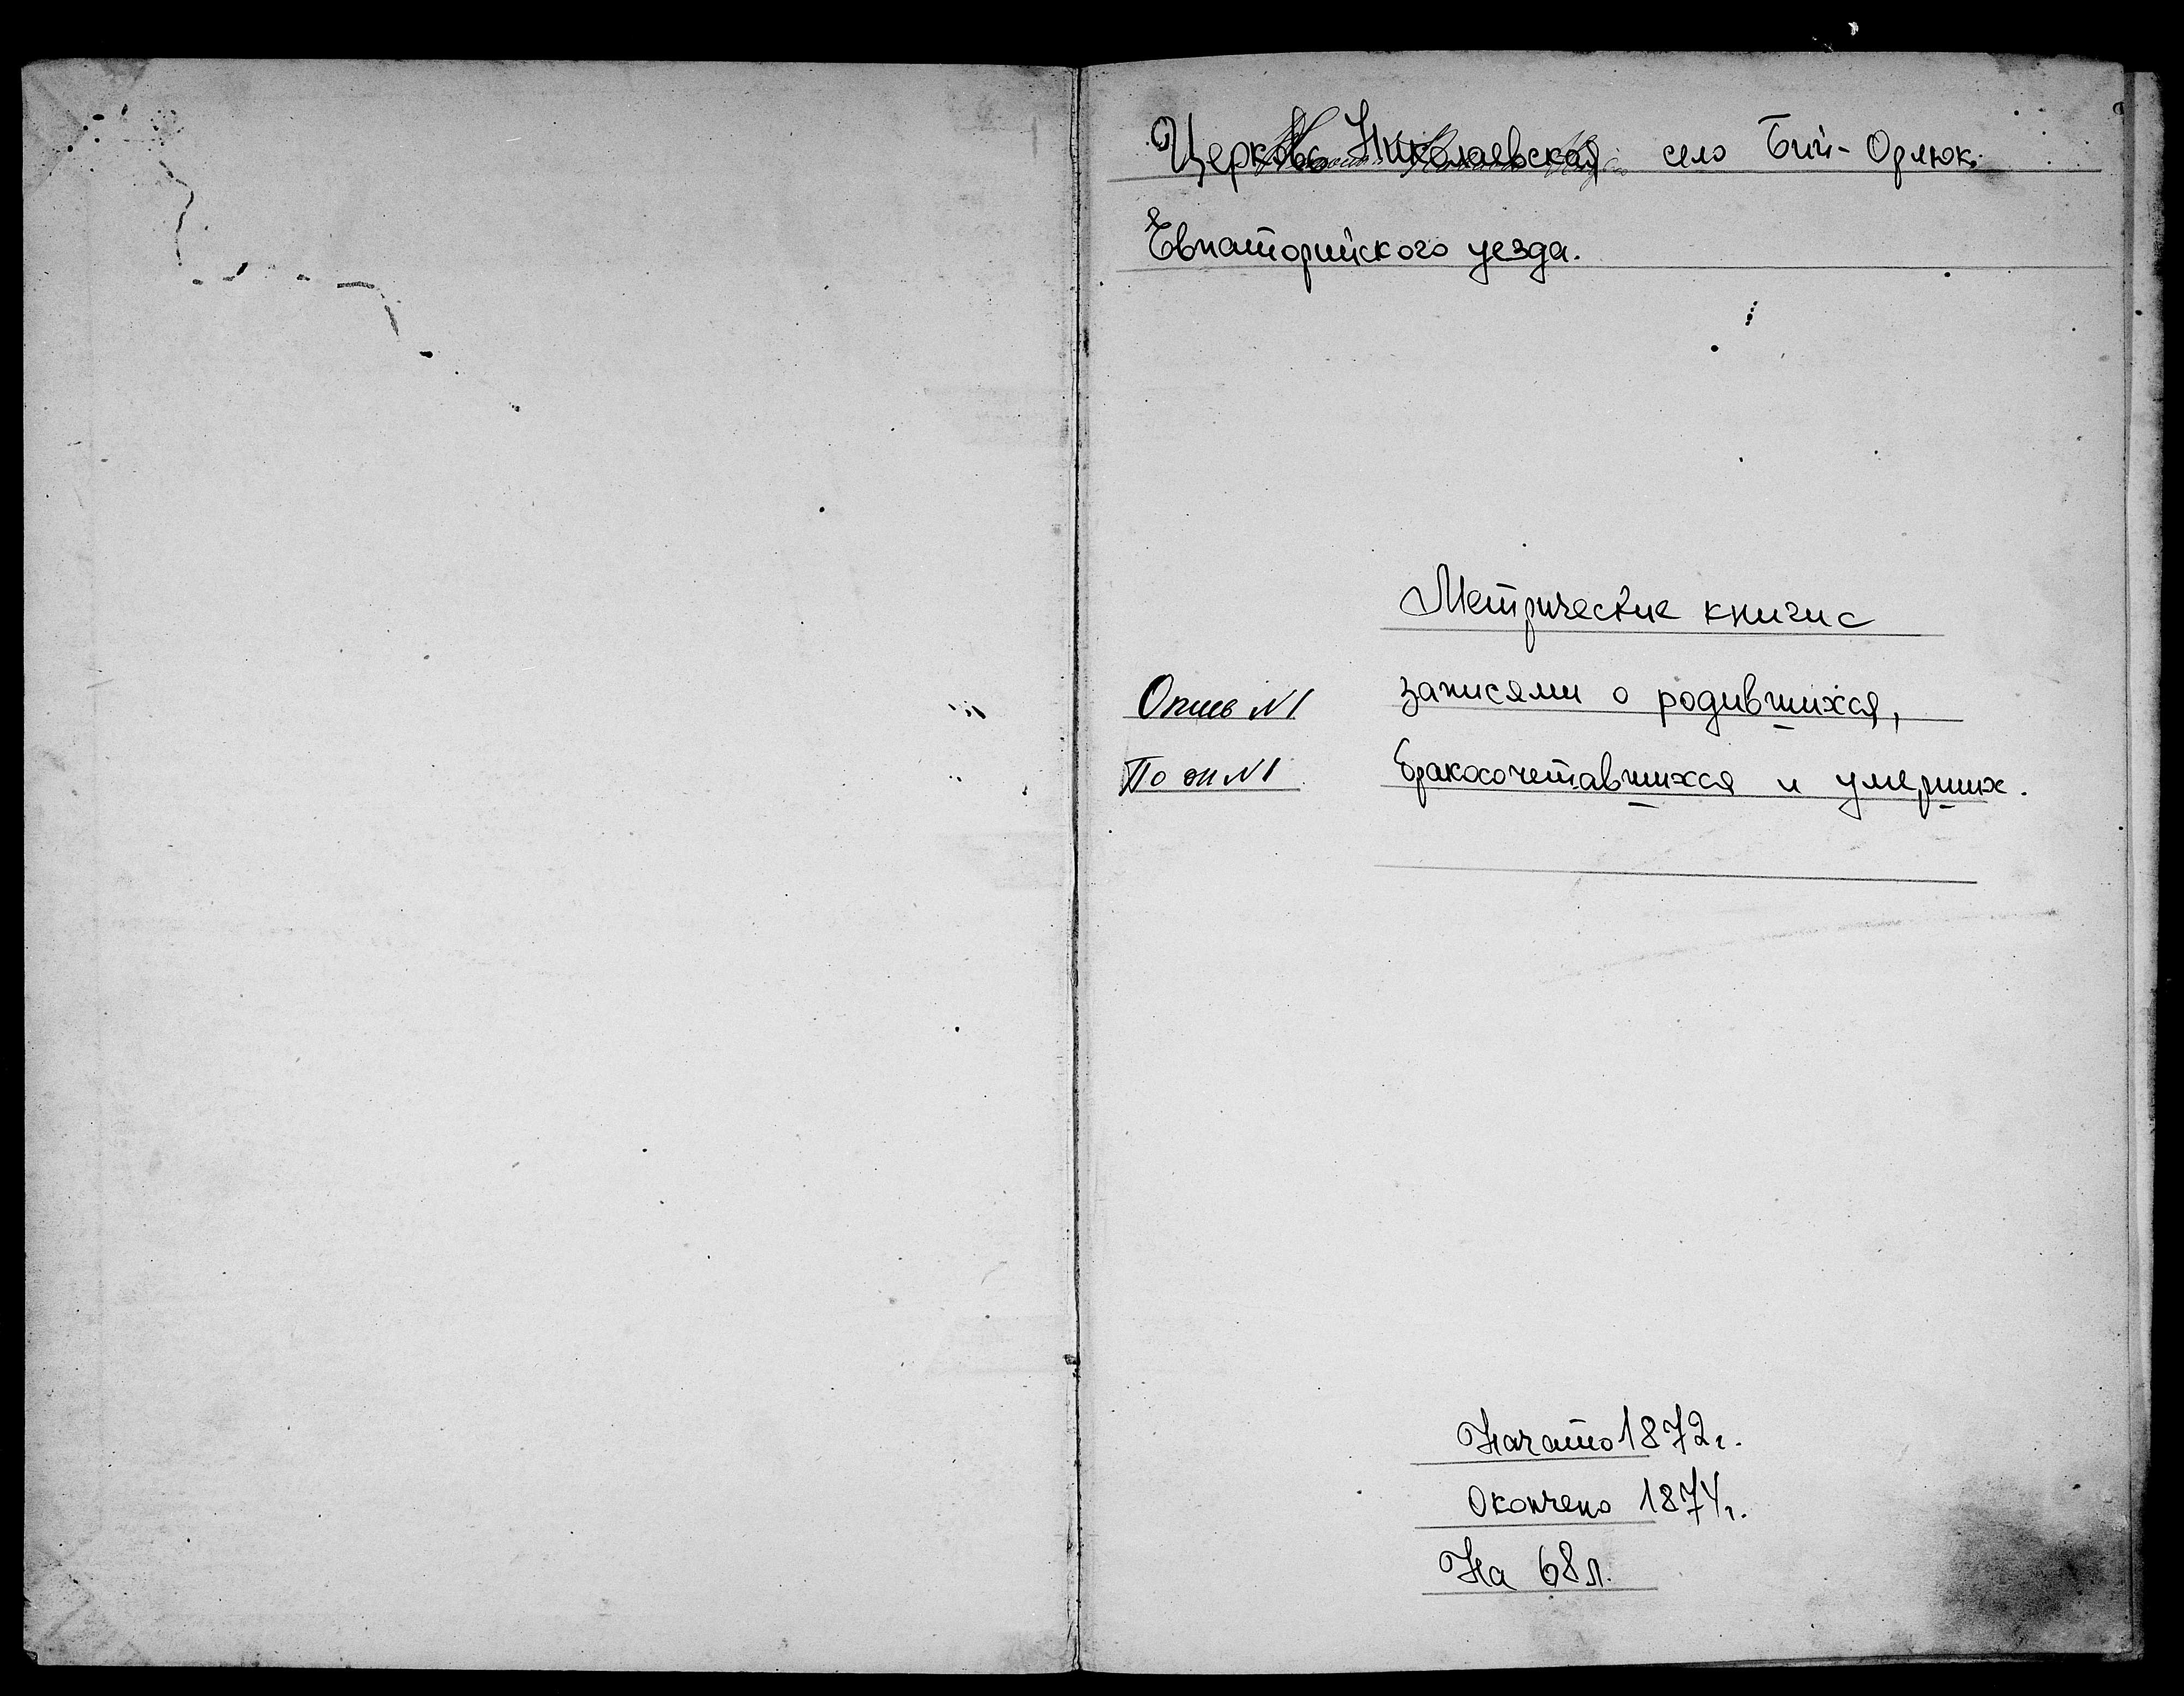 Церковь Николаевская село Бий-Орлюк.
Евпаторийского уезда.
Метрические книги с
Опись N1 записями о родившихся,
По оп N1 бракосочетавшихся и умерших.
Начато 1872 г.
Окончено 1874 г.
На 68 л.